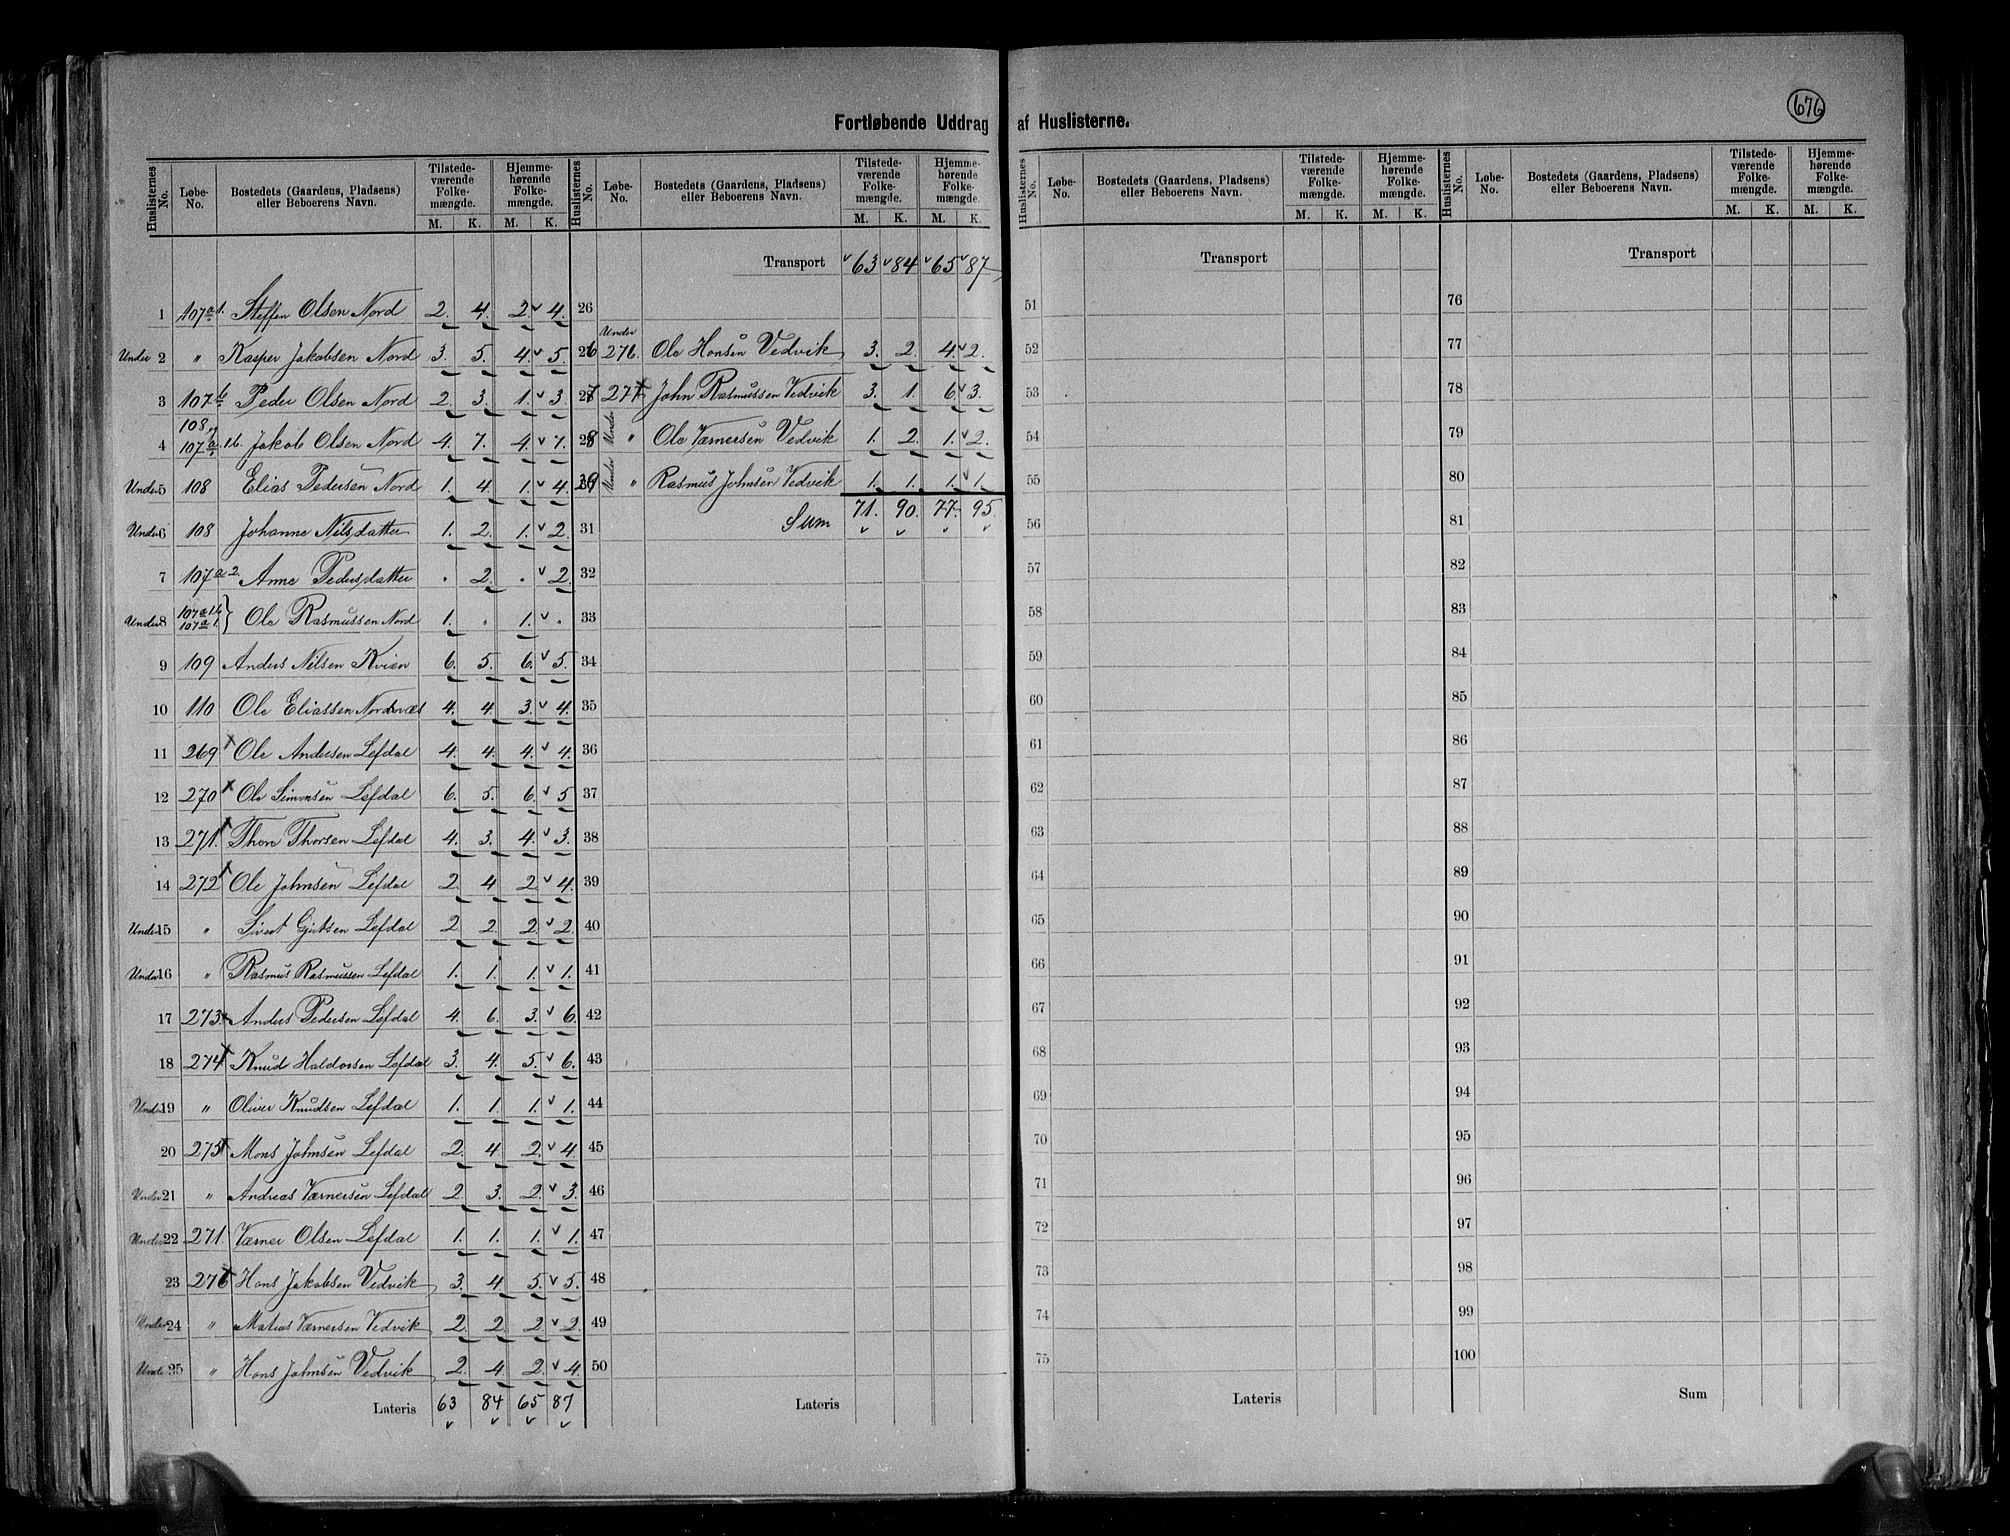 676
Fortløbende Uddrag af Huslisterne.
Huslisternes No. | Løbe-No. | Bostedets (Gaarden, Pladsen) eller Beboerens Navn. | Tilstedeværende Folkemængde. M. K. | Hjemmehørende Folkemængde. M. K.
1 107a1. Steffen Olsen Nord 2. 4. 2. 4.
Under 2 " Kasper Jakobsen Nord 3. 5. 4. 5.
3 107b Peder Olsen Nord 2. 3. 1. 3.
4 108 og 107a1b. Jakob Olsen Nord 4. 7. 4. 7.
Under 5 108 Elias Pedersen Nord 1. 4. 1. 4.
Under 6 108 Johanne Nilsdatter 1. 2. 1. 2.
7 107a2. Anne Pedersdatter . 2. . 2.
Under 8 107a1b. 107a1. } Ole Rasmussen Nord 1. . 1. .
9 109 Anders Nilsen Kvien 6. 5. 6. 5.
10 110 Ole Eliassen Nordnæs 4. 4. 3. 4.
11 269 Ole Andersen Lefdal 4. 4. 4. 4.
12 270 Ole Simonsen Lefdal 6. 5. 6. 5
13 271. Thore Thorsen Lefdal 4. 3. 4. 3.
14 272 Ole Johnsen Lefdal 2. 4 2. 4.
Under 15 " Sivert Lefdal 2. 2. 2. 2.
Under 16 " Rasmus Rasmussen Lefdal 1. 1. 1. 1.
17 273. Anders Pedersen Lefdal 4. 6. 3. 6.
18 274 Knud Haldorsen Lefdal 3. 4. 5. 6.
Under 19 " Oliver Knudsen Lefdal 1. 1. 1. 1.
20 275 Mons Johnsen Lefdal 2. 4. 2. 4.
Under 21 " Andreas Værnersen Lefdal 2. 3. 2. 3.
Under 22 271. Værner Olsen Lefdal 1. 1. 1. 1.
23 276 Hans Jakobsen Vedvik 3. 4. 5. 5.
Under 24 " Matias Værnersen Vedvik 2. 2. 2. 2.
Under 25 " Hans Johnsen Vedvik 2. 4. 2. 4.
Lateris 63 84 65 87
Huslisternes No. | Løbe-No. | Bostedets (Gaarden, Pladsen) eller Beboerens Navn. | Tilstedeværende Folkemængde. M. K. | Hjemmehørende Folkemængde. M. K.
Transport 63 84 65 87
26
26 Under 276. Ole Hansen Vedvik 3. 2. 4. 2.
27 277 John Rasmussen Vedvik 3. 1. 6. 3.
28 Under " Ole Værnersen Vedvik 1. 2. 1. 2.
29 Under " Rasmus Johnsen Vedvik 1. 1. 1. 1.
Sum 71. 90. 77. 95.
31
32
33
34
35
36
37
38
39
40
41
42
43
44
45
46
47
48
49
50
Lateris
Huslisternes No. | Løbe-No. | Bostedets (Gaardens, Pladsen) eller Beboerens Navn. | Tilstedeværende Folkemængde. M. K. | Hjemmehørende Folkemængde. M. K.
Transport
51
52
53
54
55
56
57
58
59
60
61
62
63
64
65
66
67
68
69
70
71
72
73
74
75
Lateris
Huslisternes No. | Løbe-No. | Bostedets (Gaardens, Pladsen) eller Beboerens Navn. | Tilstedeværende Folkemængde. M. K. | Hjemmehørende Folkemængde. M. K.
Transport
76
77
78
79
80
81
82
83
84
85
86
87
88
89
90
91
92
93
94
95
96
97
98
99
100
Sum